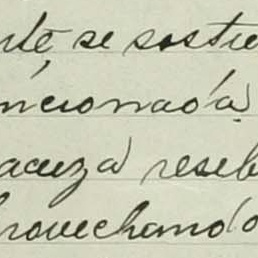 nte se sostie
ncionada
acuza reseb
provechando